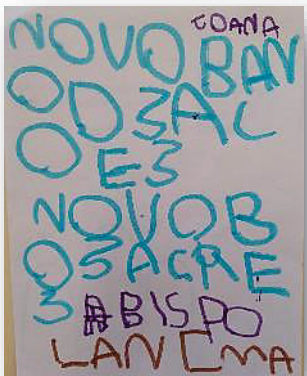 JOANA
NOVO BAN
OD3AL
OE3
NOVOB
O3ACRE
3 ABISPO
LANCMA